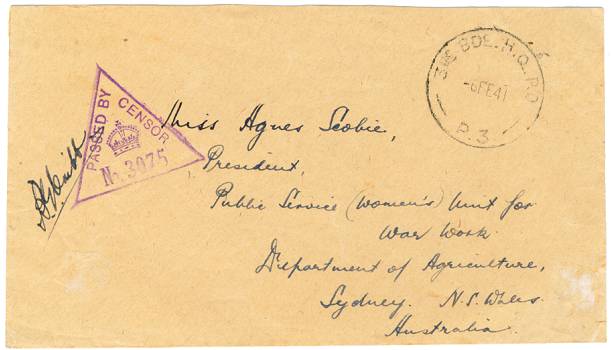 PASSED BY CENSOR
No. 3075
BDE. H.Q. P.O
-6FE41
P.3
Miss Agnes Scobie,
President,
Public Service (Women's) Unit for
War Work.
Department of Agriculture,
Sydney. N.S. Wales.
Australia.